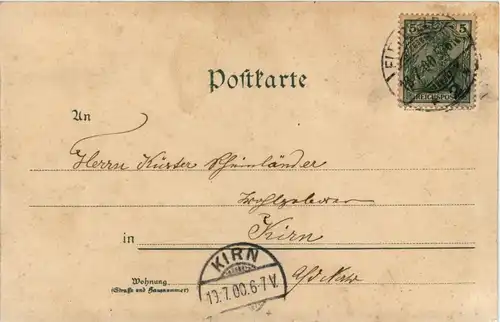 5 5
REICHSPOST
Postkarte
An
Herrn Küster Rheinländer
Wohlgeboren
in Kirn
KIRN
19.7.00.6-7V.
Wohnung
(Straße und Hausnummer)